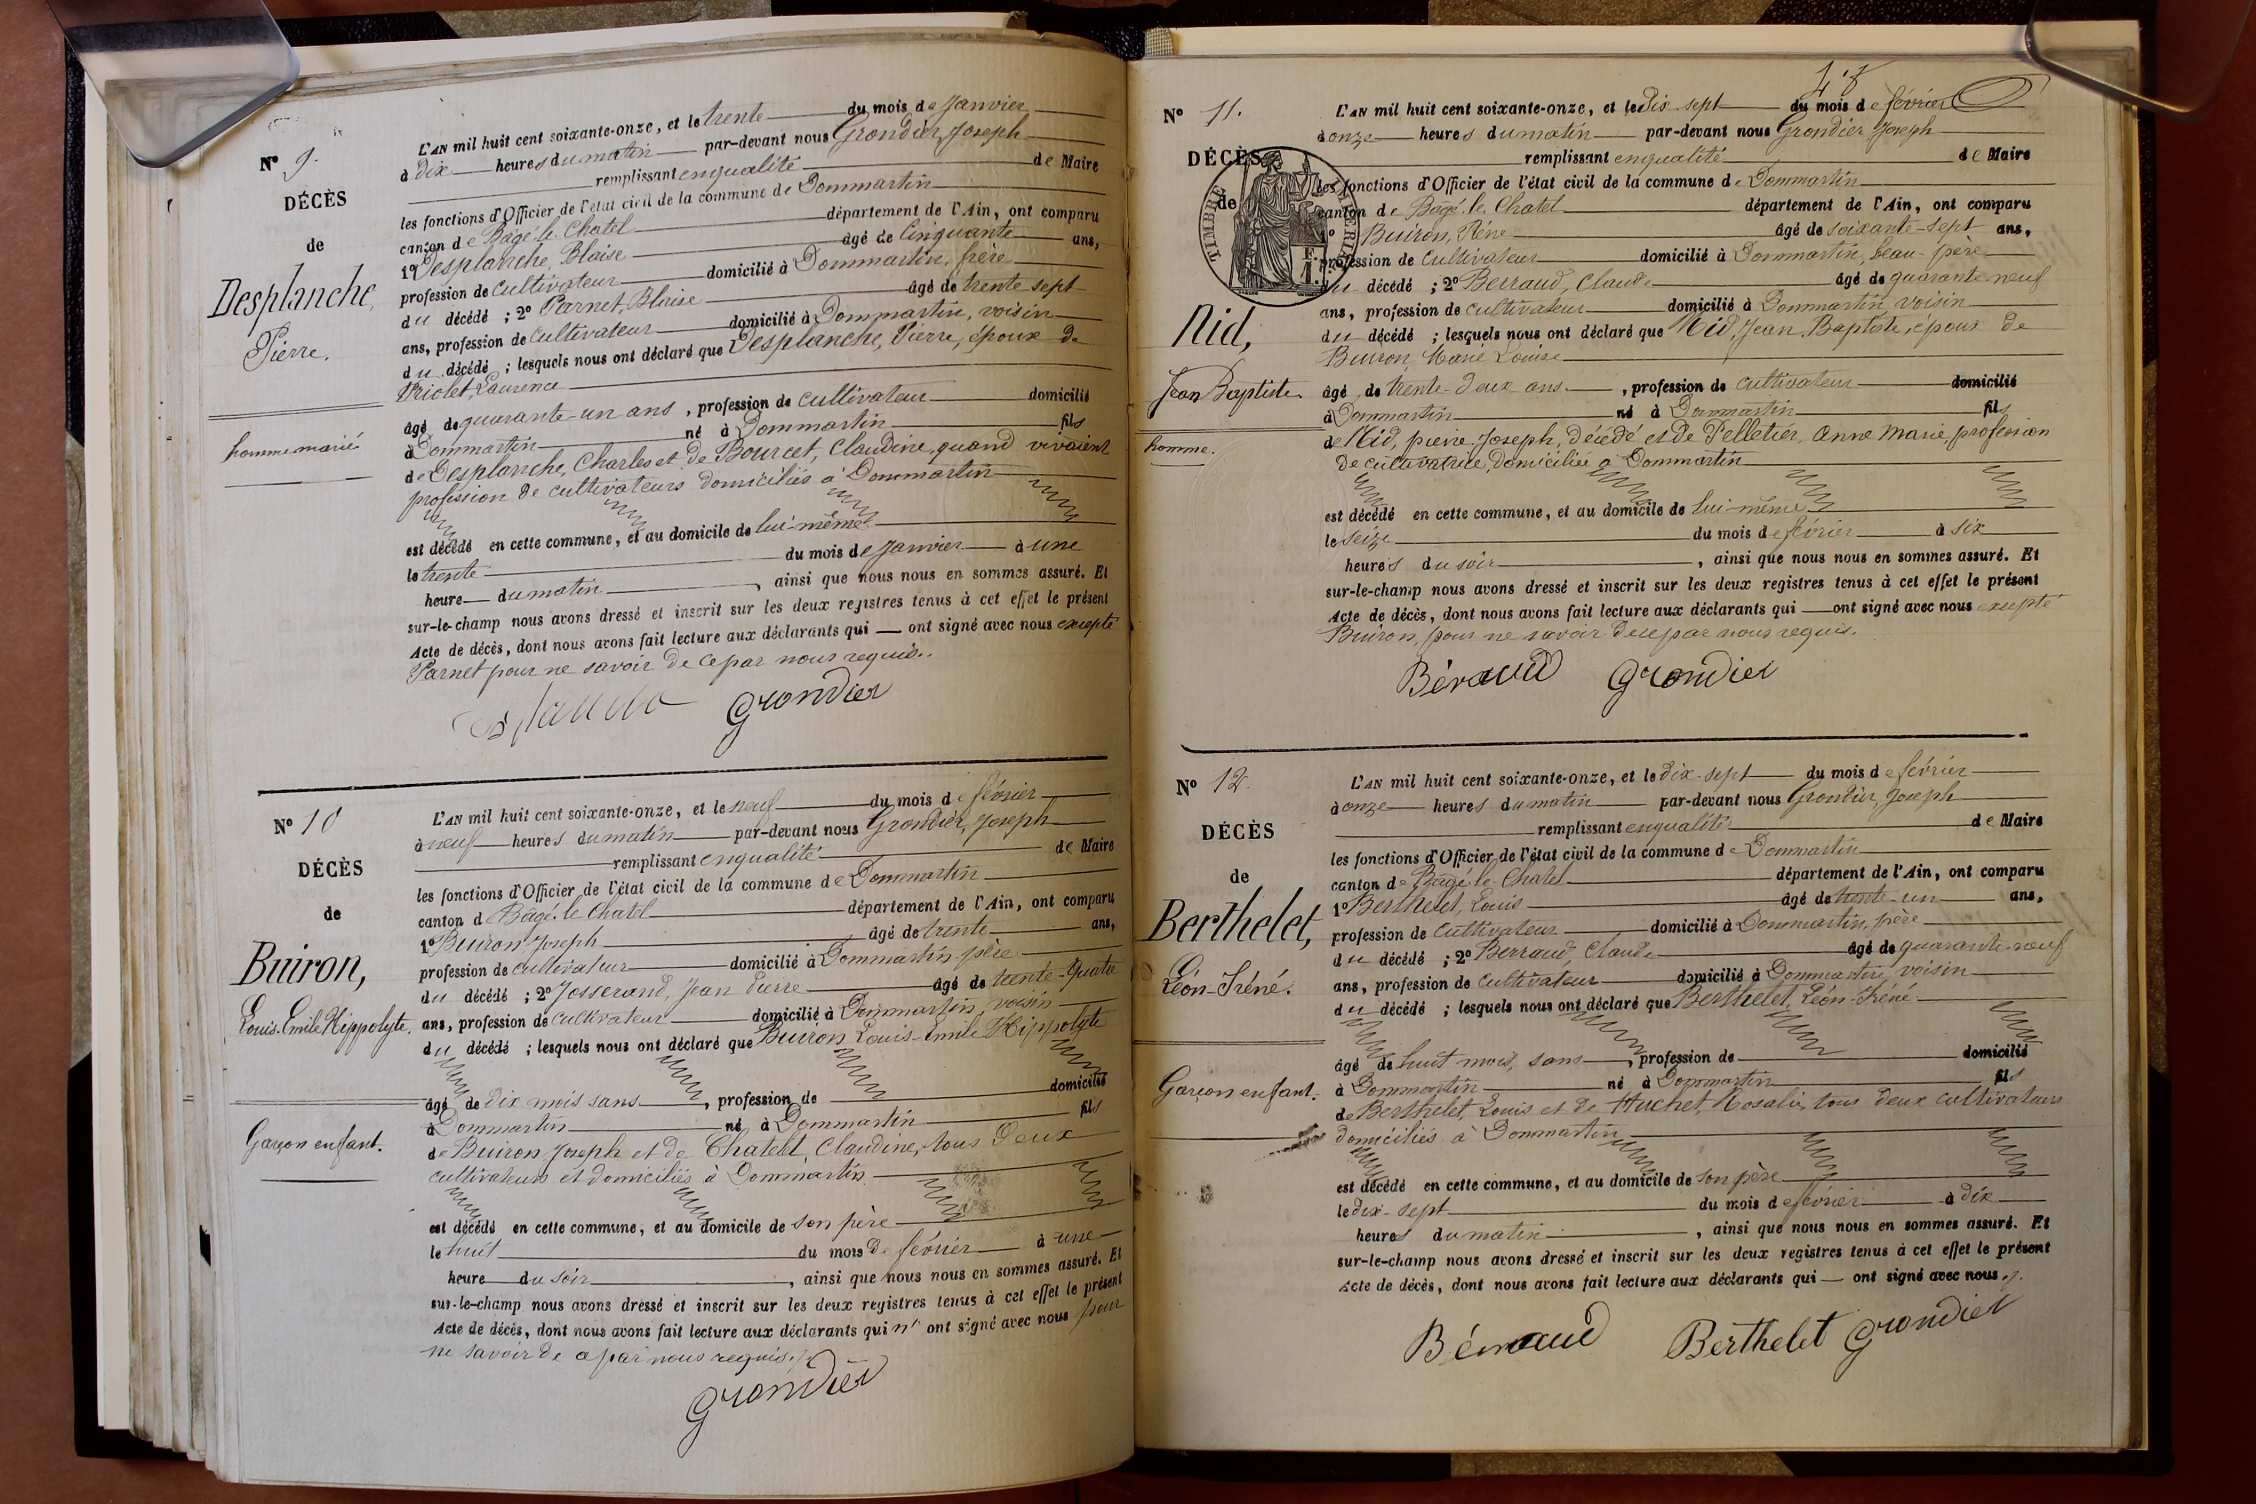 N° 9.
DÉCÈS
de
Desplanche,
Pierre.
homme marié
L'AN mil huit cent soixante-onze, et le trente du mois de Janvier
à dix heures du matin par-devant nous Grondier, Joseph
remplissant en qualité de Maire
les fonctions d'Officier de l'état civil de la commune de Dommartin
canton de Bâgé-le-Chatel département de l'Ain, ont comparu
1° Desplanche, Blaise âgé de Cinquante ans,
profession de cultivateur domicilié à Dommartin, frère
du décédé ; 2° Parnet, Blaise âgé de trente sept
ans, profession de cultivateur domicilié à Dommartin, voisin
du décédé ; lesquels nous ont déclaré que Desplanche, Pierre, époux de
Laurence
âgé de quarante-un ans, profession de cultivateur domicilié
à Dommartin né à Dommartin fils
de Desplanche, Charles et de Bourcet, Claudine, quand vivaient
profession de cultivateurs domiciliés à Dommartin
est décédé en cette commune, et au domicile de lui-même
le trente du mois de Janvier à une
heure du matin, ainsi que nous nous en sommes assuré. Et
sur-le-champ nous avons dressé et inscrit sur les deux registres tenus à cet effet le présent
Acte de décès, dont nous avons fait lecture aux déclarants qui ont signé avec nous excepté
Parnet pour ne savoir de ce par nous requis.
Grondier
N° 10
DÉCÈS
de
Buiron,
Louis-Emile Hippolyte.
Garçon enfant.
L'AN mil huit cent soixante-onze, et le neuf du mois de février
à neuf heures du matin par-devant nous Grondier, Joseph
remplissant en qualité de Maire
les fonctions d'Officier de l'état civil de la commune de Dommartin
canton de Bâgé-le-Chatel département de l'Ain, ont comparu
1° Buiron Joseph âgé de trente ans,
profession de cultivateur domicilié à Dommartin père
du décédé ; 2° Josserand, Jean Pierre âgé de trente-quatre
ans, profession de cultivateur domicilié à Dommartin, voisin
du décédé ; lesquels nous ont déclaré que Buiron Louis-Emile Hippolyte
âgé de dix mois sans, profession de domicilié
à Dommartin né à Dommartin fils
de Buiron Joseph et de Chatelet, Claudine, tous deux
cultivateurs et domiciliés à Dommartin
est décédé en cette commune, et au domicile de son père
le huit du mois de février à une
heure du soir, ainsi que nous nous en sommes assuré. Et
sur-le-champ nous avons dressé et inscrit sur les deux registres tenus à cet effet le présent
Acte de décès, dont nous avons fait lecture aux déclarants qui n' ont signé avec nous pour
ne savoir de ce par nous requis.
Grondier
N° 11.
DÉCÈS
de
TIMBRE IMPERIAL
Nid,
Jean Baptiste
homme.
L'AN mil huit cent soixante-onze, et le dix-sept du mois de février
à onze heures du matin par-devant nous Grondier Joseph
remplissant en qualité de Maire
les fonctions d'Officier de l'état civil de la commune de Dommartin
canton de Bâgé-le-Chatel département de l'Ain, ont comparu
Buiron, Réne âgé de soixante-sept ans,
profession de cultivateur domicilié à Dommartin, beau-père
du décédé ; 2° Berraud, Claude âgé de quarante-neuf
ans, profession de cultivateur domicilié à Dommartin, voisin
du décédé ; lesquels nous ont déclaré que Nid, Jean Baptiste, époux de
Buiron, Marie Louise
âgé de trente-deux ans, profession de cultivateur domicilié
à Dommartin né à Dommartin fils
de Nid, pierre-Joseph, décédé et de Pelletier, Anne Marie, profession
de cultivatrice, Domiciliée à Dommartin
est décédé en cette commune, et au domicile de lui-même
le seize du mois de février à six
heures du soir, ainsi que nous nous en sommes assuré. Et
sur-le-champ nous avons dressé et inscrit sur les deux registres tenus à cet effet le présent
Acte de décès, dont nous avons fait lecture aux déclarants qui ont signé avec nous excepté
Buiron, pour ne savoir de ce par nous requis.
Béraud Grondier
N° 12.
DÉCÈS
de
Berthelet,
Léon-Iréné.
Garçon enfant.
L'AN mil huit cent soixante-onze, et le dix-sept du mois de février
à onze heures du matin par-devant nous Grondier, Joseph
remplissant en qualité de Maire
les fonctions d'Officier de l'état civil de la commune de Dommartin
canton de Bâgé-le-Chatel département de l'Ain, ont comparu
1° Berthelet, Louis âgé de trente-un ans,
profession de cultivateur domicilié à Dommartin, père
du décédé ; 2° Berraud, Claude âgé de quarante-neuf
ans, profession de cultivateur domicilié à Dommartin, voisin
du décédé ; lesquels nous ont déclaré que Berthelet, Léon-Iréné
âgé de huit mois, sans, profession de domicilié
à Dommartin né à Dommartin fils
de Berthelet, Louis et de Huchet, Rosalie, tous deux cultivateurs
domiciliés à Dommartin
est décédé en cette commune, et au domicile de son père
le dix-sept du mois de février à dix
heures du matin, ainsi que nous nous en sommes assuré. Et
sur-le-champ nous avons dressé et inscrit sur les deux registres tenus à cet effet le présent
Acte de décès, dont nous avons fait lecture aux déclarants qui ont signé avec nous.
Béraud Berthelet Grondier